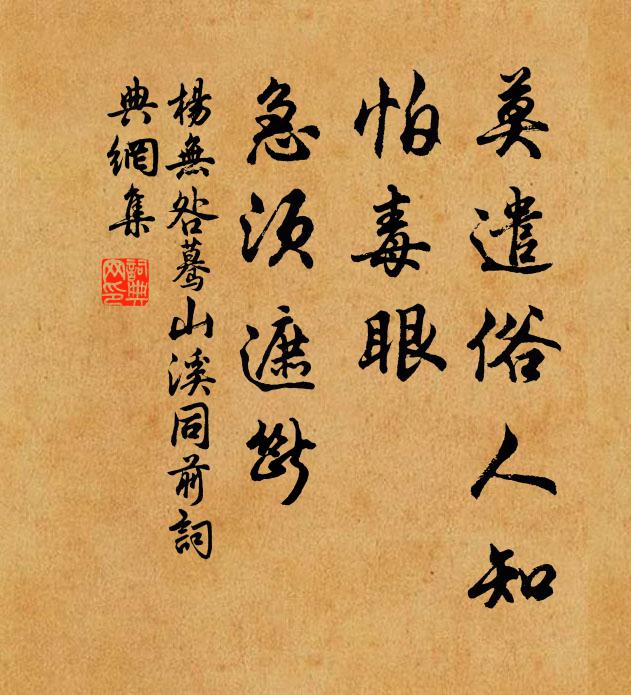 莫遣俗人知
怕毒眼
急须遮斷
楊無咎蓦山溪同前詞
典網集
詞典
网印